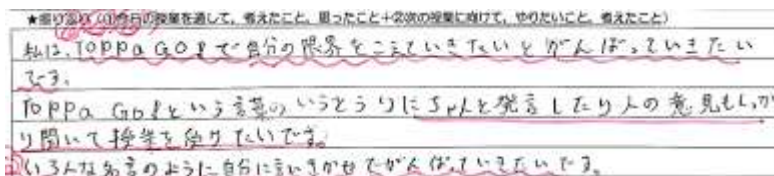 ★振り返り(①今日の授業を通して，考えたこと，思ったこと+②次の授業に向けて，やりたいこと，考えたこと)
私は、Toppa GO!で自分の限界をこえていきたいとがんばっていきたい
です。
Toppa Go!という言葉のいうとうりにちゃんと発言したり人の意見もしっか
り聞いて授業を受けたいです。
いろんな名言のように自分に言いきかせてがんばっていきたいです。